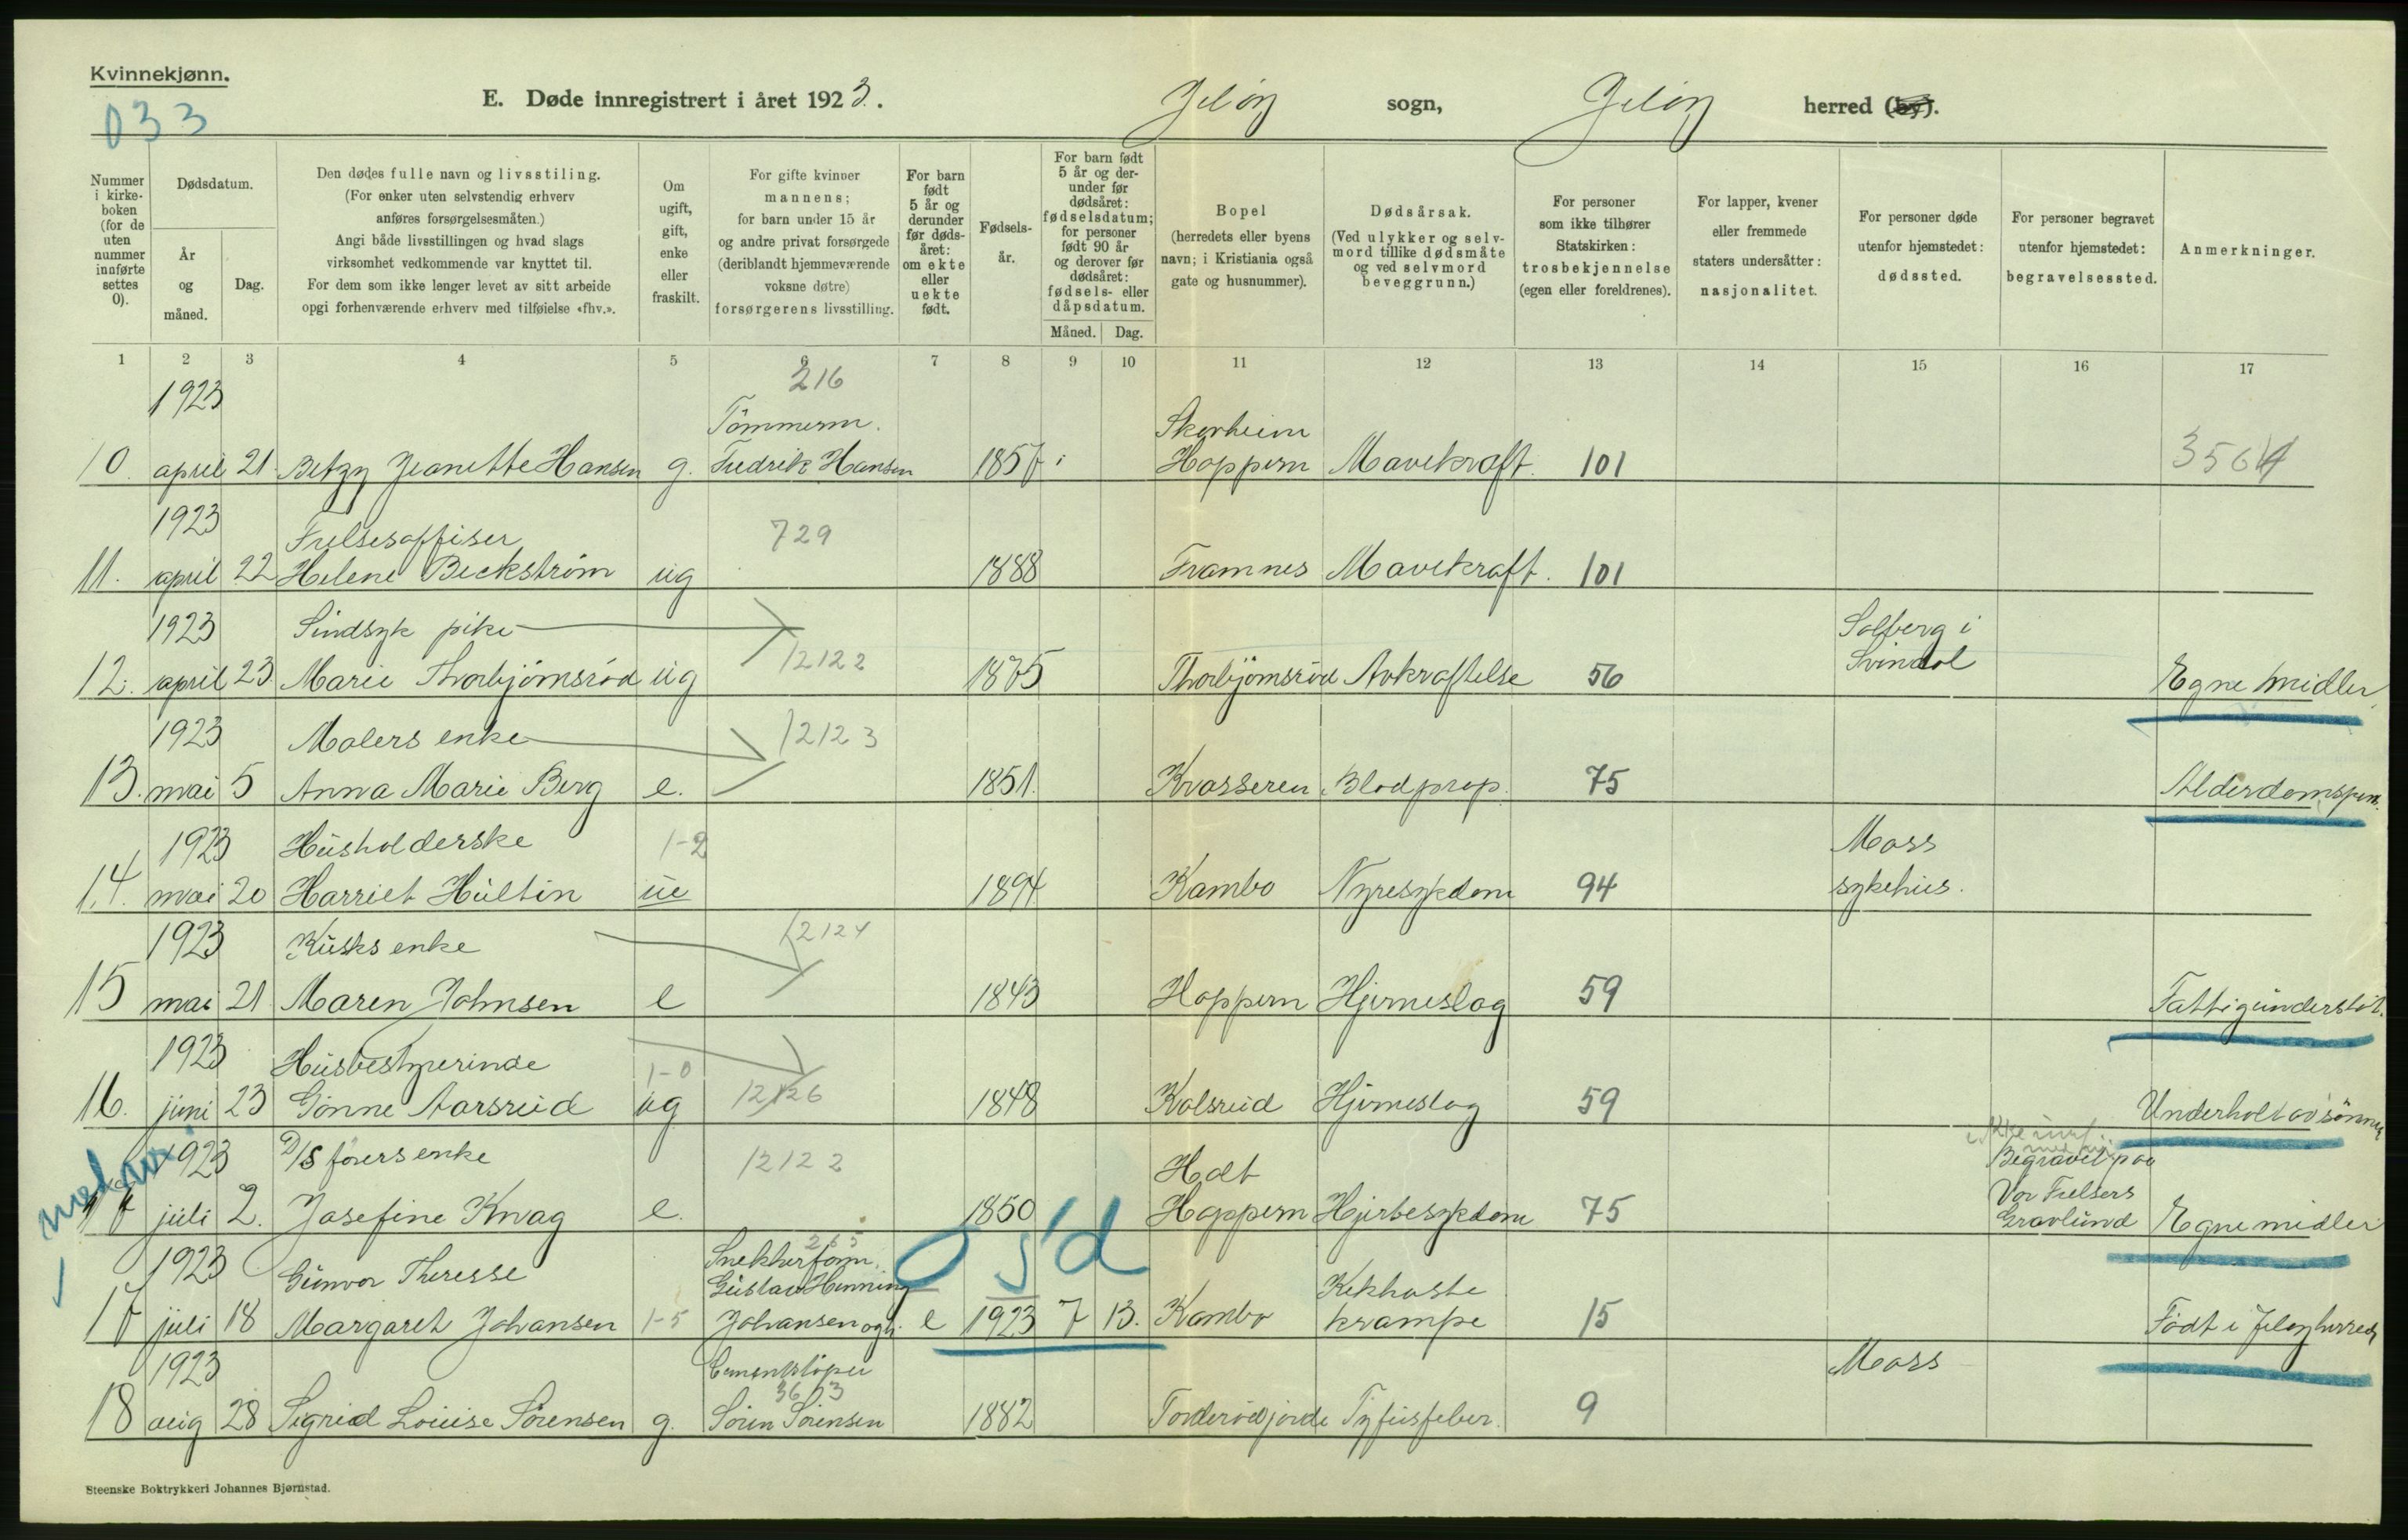 Kvinnekjønn.
033
E. Døde innregistrert i året 1923.
Jeløy sogn, Jeløy herred (by).
Nummer i kirke-boken (for de uten nummer innførte settes 0).
Dødsdatum.
År og måned.
Dag.
Den dødes fulle navn og livsstiling.
(For enker uten selvstendig erhverv
anføres forsørgelsesmåten.)
Angi både livsstillingen og hvad slags
virksomhet vedkommende var knyttet til.
For dem som ikke lenger levet av sitt arbeide
opgi forhenværende erhverv med tilføielse «fhv.».
Om ugift, gift, enke eller fraskilt.
For gifte kvinner
mannens;
for barn under 15 år
og andre privat forsørgede
(deriblandt hjemmeværende
voksne døtre)
forsørgerens livsstilling.
For barn født 5 år og derunder før døds-året: om ekte eller uekte født.
Fødsels-år.
For barn født 5 år og der-under før dødsåret: fødselsdatum; for personer født 90 år og derover før dødsåret: fødsels- eller dåpsdatum.
Måned. Dag.
Bopel
(herredets eller byens
navn; i Kristiania også
gate og husnummer).
Dødsårsak.
(Ved ulykker og selv-
mord tillike dødsmåte
og ved selvmord
beveggrunn.)
For personer
som ikke tilhører
Statskirken:
trosbekjennelse
(egen eller foreldrenes).
For lapper, kvener
eller fremmede
staters undersåtter:
nasjonalitet.
For personer døde
utenfor hjemstedet:
dødssted.
For personer begravet
utenfor hjemstedet:
begravelsessted.
Anmerkninger.
1 2 3 4 5 6 7 8 9 10 11 12 13 14 15 16 17
1923 216
Tömmerm. Skovheim
10. april 21 Betzy Jeanette Hansen g. Fredrik Hansen 1857 Hoppern Mavekræft. 101 3564
1923 Frelsesoffiser 729
11. april 22 Helene Beckström ug 1888 Framnes Mavekræft. 101
1923 Sindsyk pike 12122 Solberg i Svindal
12. april 23 Marie Thorbjörnsröd ug 1875 Thorbjörnsröd Avkræftelse 56 Egne midler
1923 Malers enke 12123
13. mai 5 Anna Marie Berg e. 1851. Kvasseren Blodprop. 75 Alderdomspen.
1923 Husholderske 1-2 Moss
14. mai 20 Harriet Hultin ue 1894 Kambo Nyresykdom 94 sykehus.
1923 Kusks enke 12124
15 mai 21 Maren Johnsen e 1843 Hoppern Hjerneslag 59 Fattigunderstöt.
1923 Husbestyrerinde 1-0
16. juni 23 Gönne Aarsrud ug 12126 1848 Kolsrud Hjerneslag 59 Underholt av sönner
1923 D/S förers enke 12122 Hdt Begravet paa
17 juli 2. Josefine Knag e. 1850 Hoppern Hjertesykdom 75 Vor Frelsers Gravlund Egne midler
1923 Gunvor Theresse 265 Snekkerform. Gustav Henning Kikhoste
17 juli 18 Margaret Johansen 1-5 Johansen ogh. e 1923 7 13. Kambo krampe 15 Födt i Jeløy herred
1923 Cementstöper 3613 Moss
18 aug 28 Sigrid Louise Sörensen g. Sören Sörensen 1882 Torderödjorde Tyfusfeber. 9
Steenske Boktrykkeri Johannes Bjørnstad.